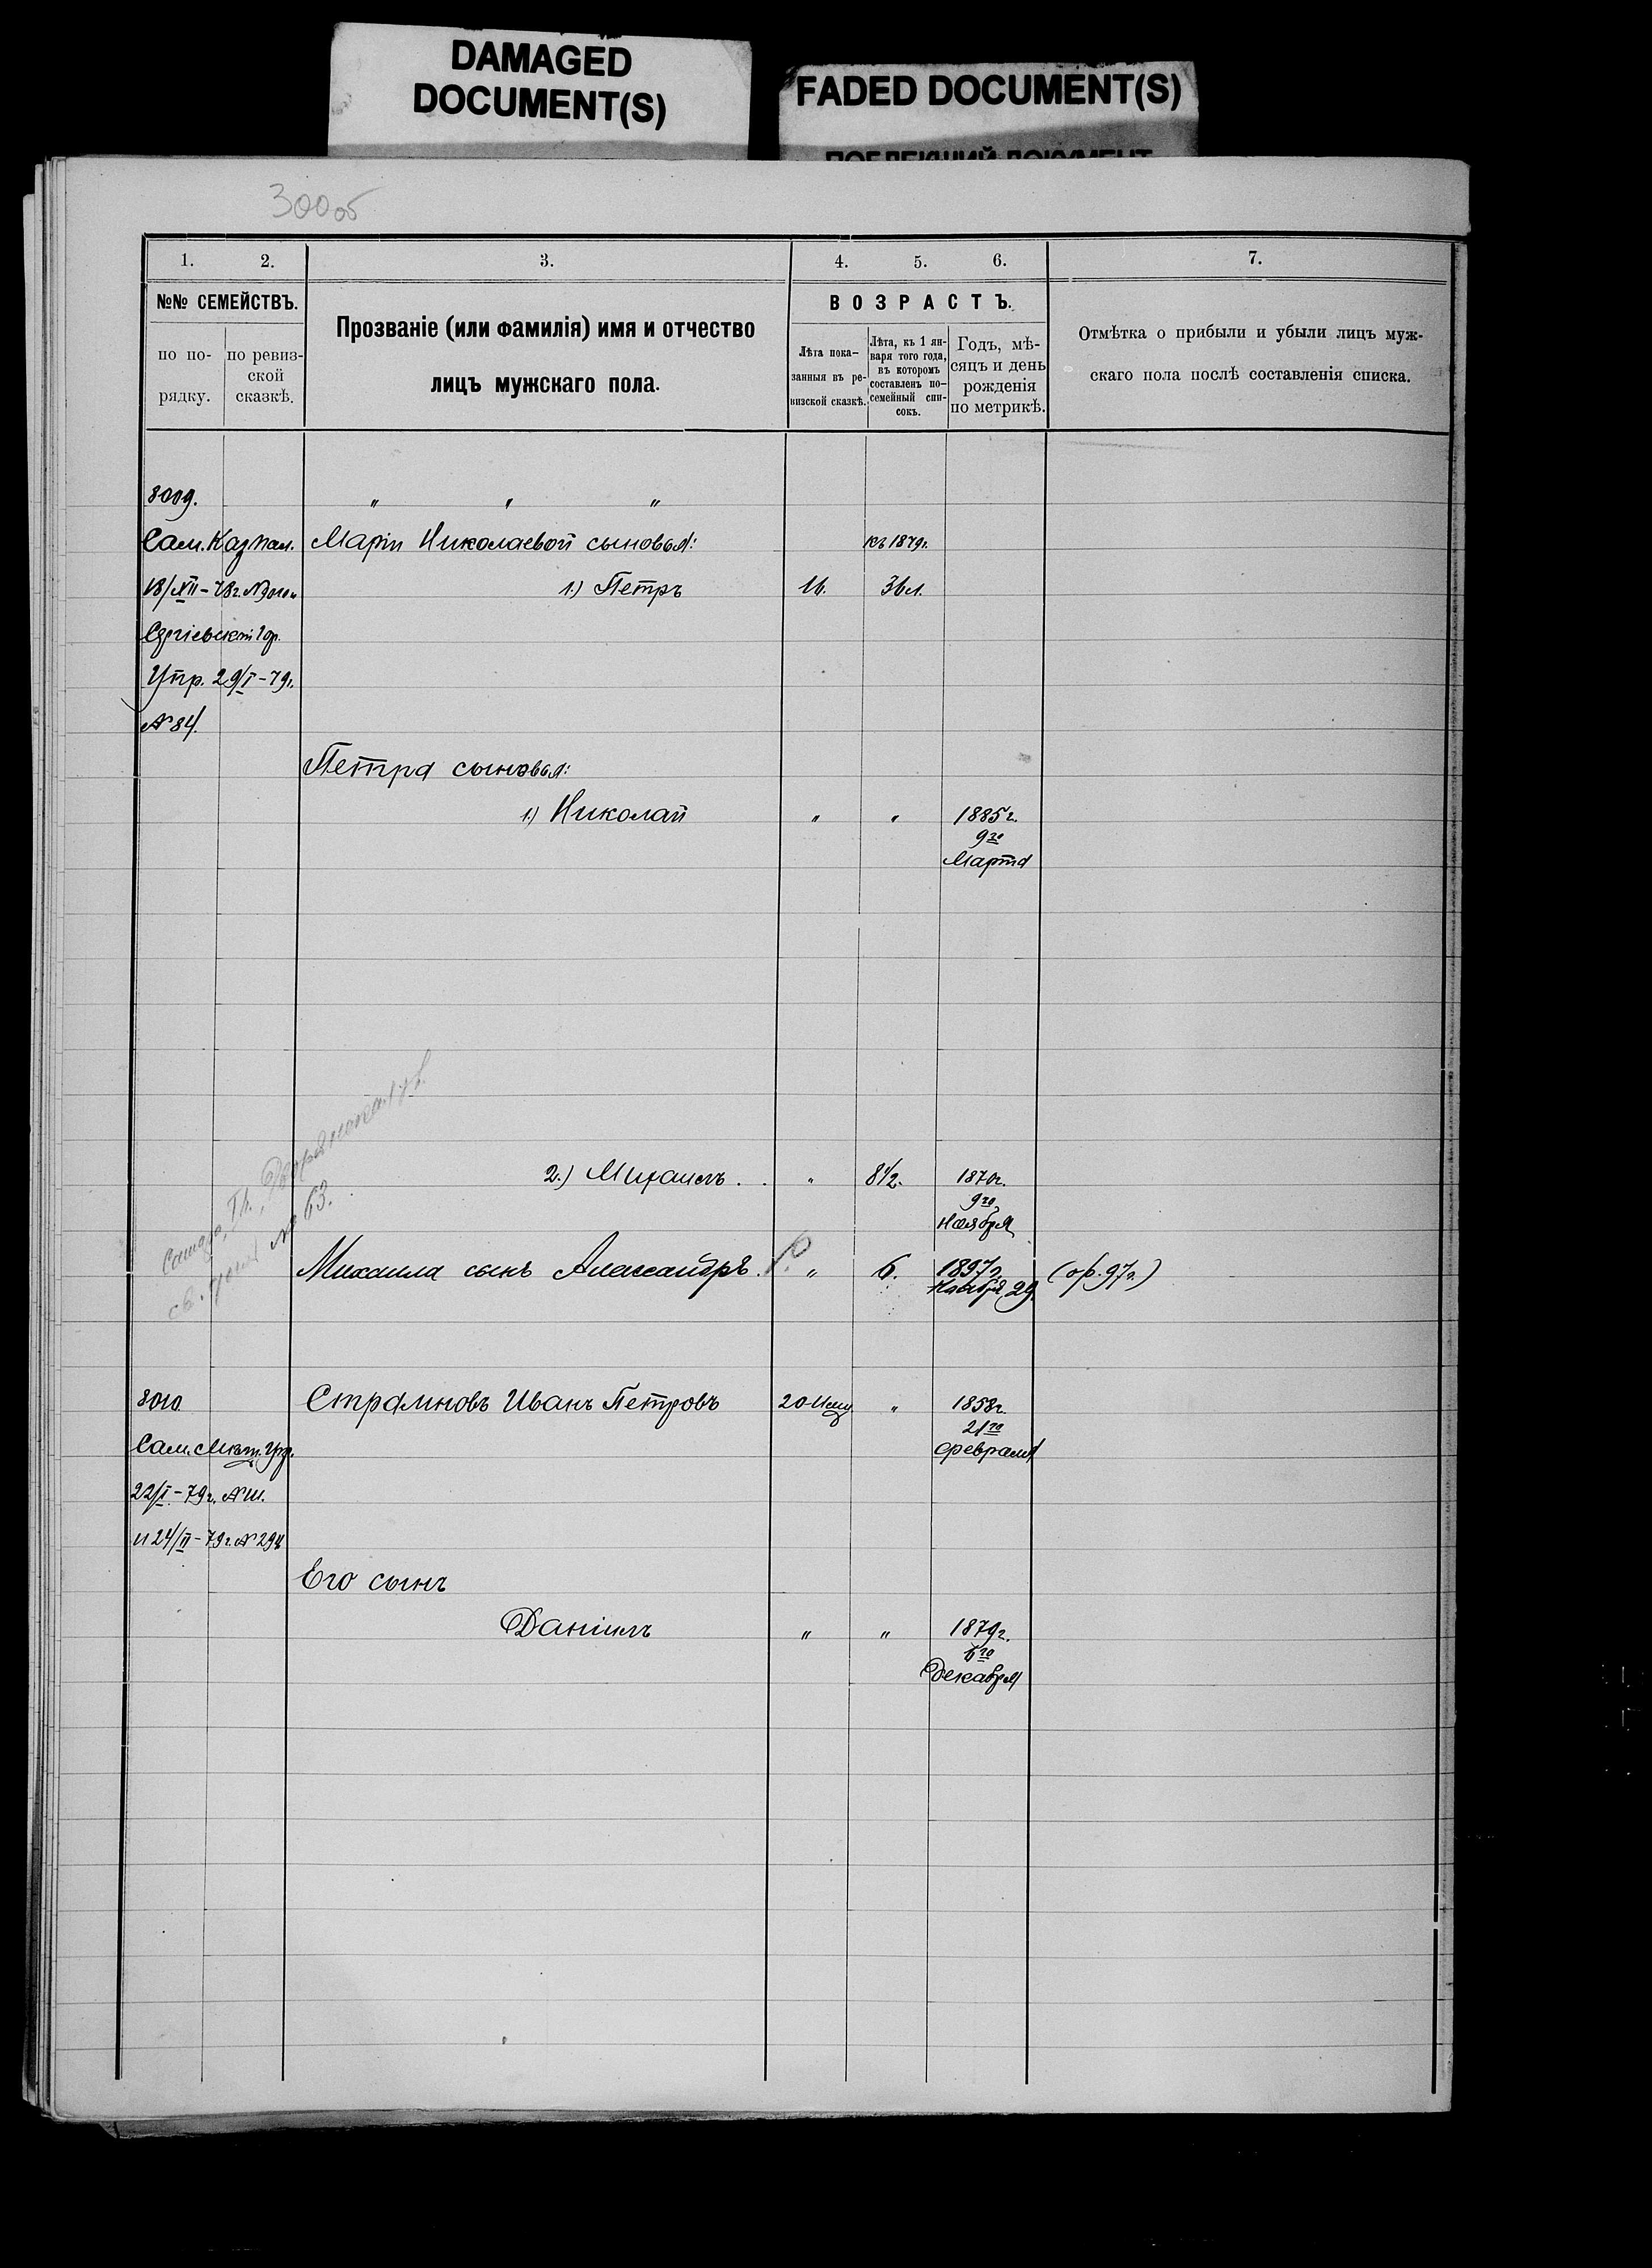 DAMAGED
DOCUMENT(S)
FADED DOCUMENT(S)
300об
1. 2. 3. 4. 5. 6. 7.
№№ СЕМЕЙСТВЪ.
по по-
рядку.
по ревиз-
ской
сказкѣ.
Прозваніе (или фамилія) имя и отчество
лицъ мужскаго пола.
ВОЗРАСТЪ.
Лѣта пока-
занныя въ ре-
визской сказкѣ.
Лѣта, къ 1 ян-
варя того года,
въ которомъ
составленъ по-
семейный спи-
сокъ.
Годъ, мѣ-
сяцъ и день
рожденія
по метрикѣ.
Отмѣтка о прибыли и убыли лицъ муж-
скаго пола послѣ составленія списка.
8009. " " "
Сам. Каз. пал. Маріи Николаевой сыновья: къ 1879г.
18/XII-78г. 1.) Петръ 16. 36 л.
Сергіевск. Гор.
Упр. 29/I-79г.
№ 84.
Петра сыновья:
1.) Николай " " 1885г.
9го
Марта
2.) Михаилъ. " 8 1/2. 1870г.
9го
Ноября
Самара, Дворянская ул.
№ 63.
Михаила сынъ Александръ. " 6. 1897г. (пр. 97г.)
Ноября 29.
8010. Страмновъ Иванъ Петровъ 20 " 1858г.
21го
Февраля
Сам. Мѣщ. Упр.
22/I-79г. № 111.
и 24/II-79г. № 294
Его сынъ
Даніилъ " " 1879г.
6го
Декабря